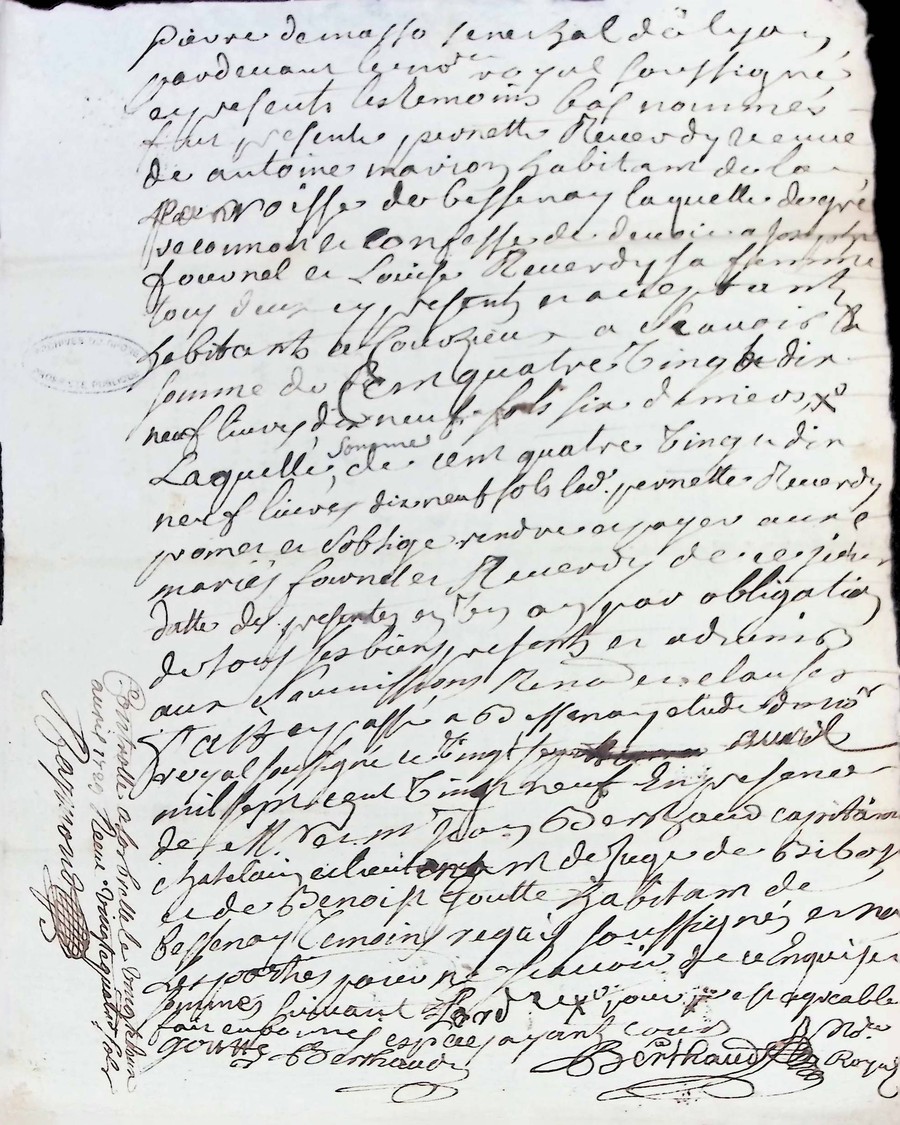 pierre de masso senechal de lyon
pardevant le no.re royal soussigné
et presents les temoins bas nommés
fut presente pernette Reverdy veuve
de antoine marion habitant de la
parroisse de bessenay laquelle de gré
reconnoi et confesse de devoir a joseph
fournel et Louise Reverdy sa femme
tous deux cy presents et acceptants
habitants a Courzieux a scavoir la
somme de Cent quatre vingt dix
neuf livres dix neuf sols six deniers
Laquelle somme de cent quatre vingt dix
neuf livres dix neuf sols lad. pernette Reverdy
promet et s'oblige rendre et payer aux
mariés fournel et Reverdy de ce jour
datte des presentes en un an par obligation
de tous ses biens presents et advenir
aux soumissions Renon et clauses
fait et passé a Bessenay etude du no.re
royal soussigné le vingt sept avril
mil sept cent vingt neuf En presence
de Berthaud capitaine
chatelain et lieutenant de juge de Bibost
et de Benoist goutte habitant de
bessenay temoins requis soussignés et non
les parties pour ne scavoir de ce Enquises
sommes suivant L'ord
fait en bonnes especes ayant cours
goutte Berthaud Berthaud No.re Royal
Controllé a larbrelle le vingt
avril 1729 Reçu vingt quatre sols